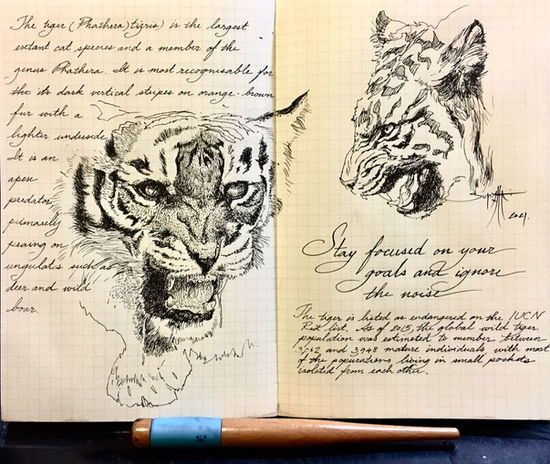 The tiger (Phathera) tigris) is the largest
extant cat species and a member of the
genus Phathera. It is most recognisable for
the its dark vertical stripes on orange-brown
fur with a
lighter underside
It is an
apex
predator
primarely
praing on
ungulates such as
deer and wild
boar.
2021.
Stay focused on your
goals and ignore
the noise
The tiger is listed as endangered on the IUCN
Red list. As of 2015, the global wild tiger
population was estimated to number between
3,062 and 3,948 mature individuals with most
of the populations living in small pockets
isolated from each other.